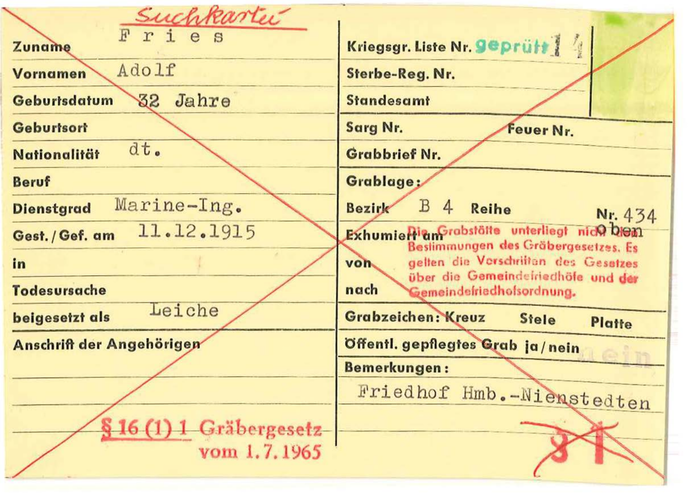 Suchkartei
Zuname Fries
Vornamen Adolf
Geburtsdatum 32 Jahre
Geburtsort
Nationalität dt.
Beruf
Dienstgrad Marine-Ing.
Gest./Gef. am 11.12.1915
in
Todesursache
beigesetzt als Leiche
Anschrift der Angehörigen
§ 16 (1) 1 Gräbergesetz
vom 1.7.1965
Kriegsgr. Liste Nr. geprüft 14
Sterbe-Reg. Nr.
Standesamt
Sarg Nr. Feuer Nr.
Grabbrief Nr.
Grablage:
Bezirk B 4 Reihe Nr. 434
oben
Exhumiert am
von
nach
Die Grabstätte unterliegt nicht den
Bestimmungen des Gräbergesetzes. Es
gelten die Vorschriften des Gesetzes
über die Gemeindefriedhöfe und der
Gemeindefriedhofsordnung.
Grabzeichen: Kreuz Stele Platte
Öffentl. gepflegtes Grab ja/nein
nein
Bemerkungen:
Friedhof Hmb.-Nienstedten